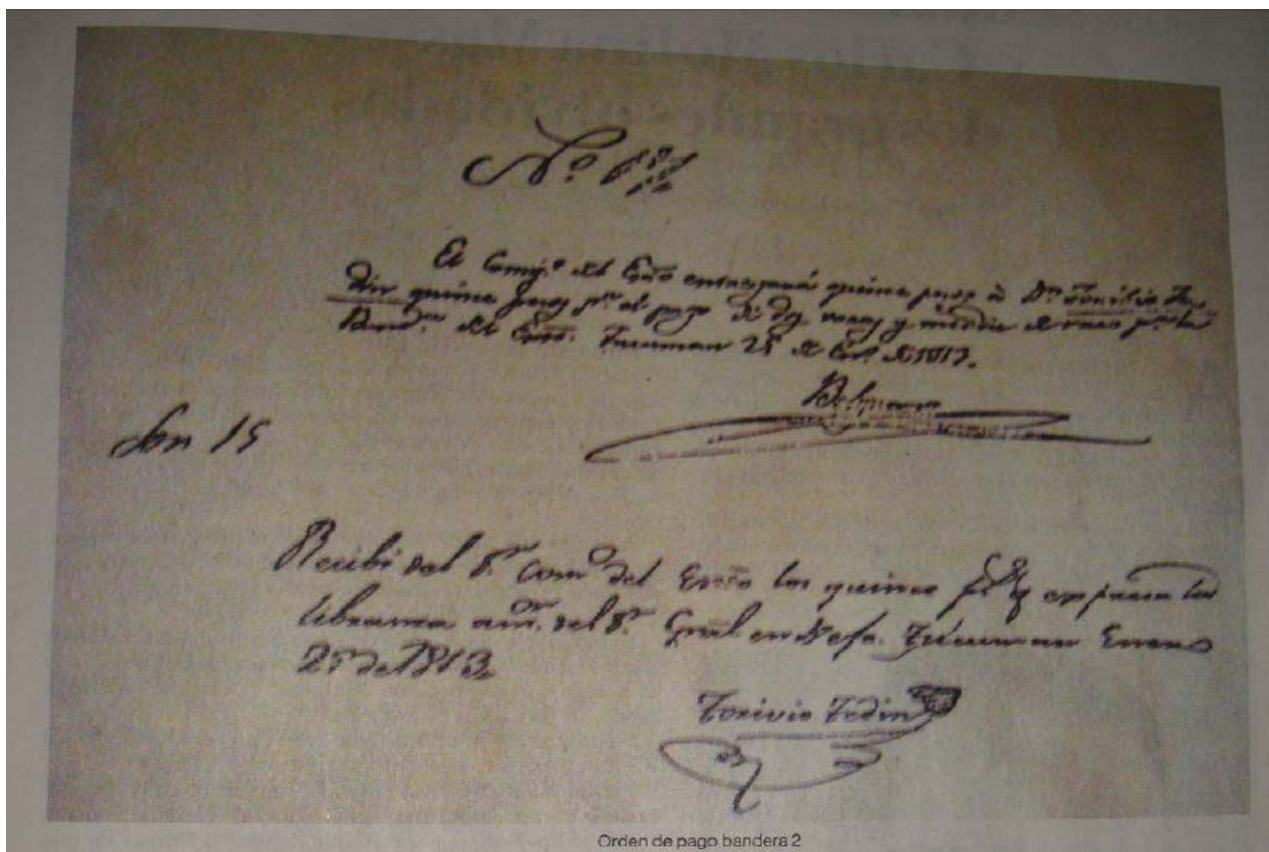 Nº 6
El Comisº del Exto entregará quince pesos à Dn Toribio Te-
din quince pesos pr el pago de dos varas y media de raso pa la
Bandª del Exto. Tucuman 25 de Enº de 1813.
Belgrano
Son 15
Recibi del Sr Comº del Exto los quince ps q expresa la
libranza antr. del Sr Gral en Xefe. Tucuman Enero
25 de 1813
Torivio Tedin
Orden de pago bandera 2